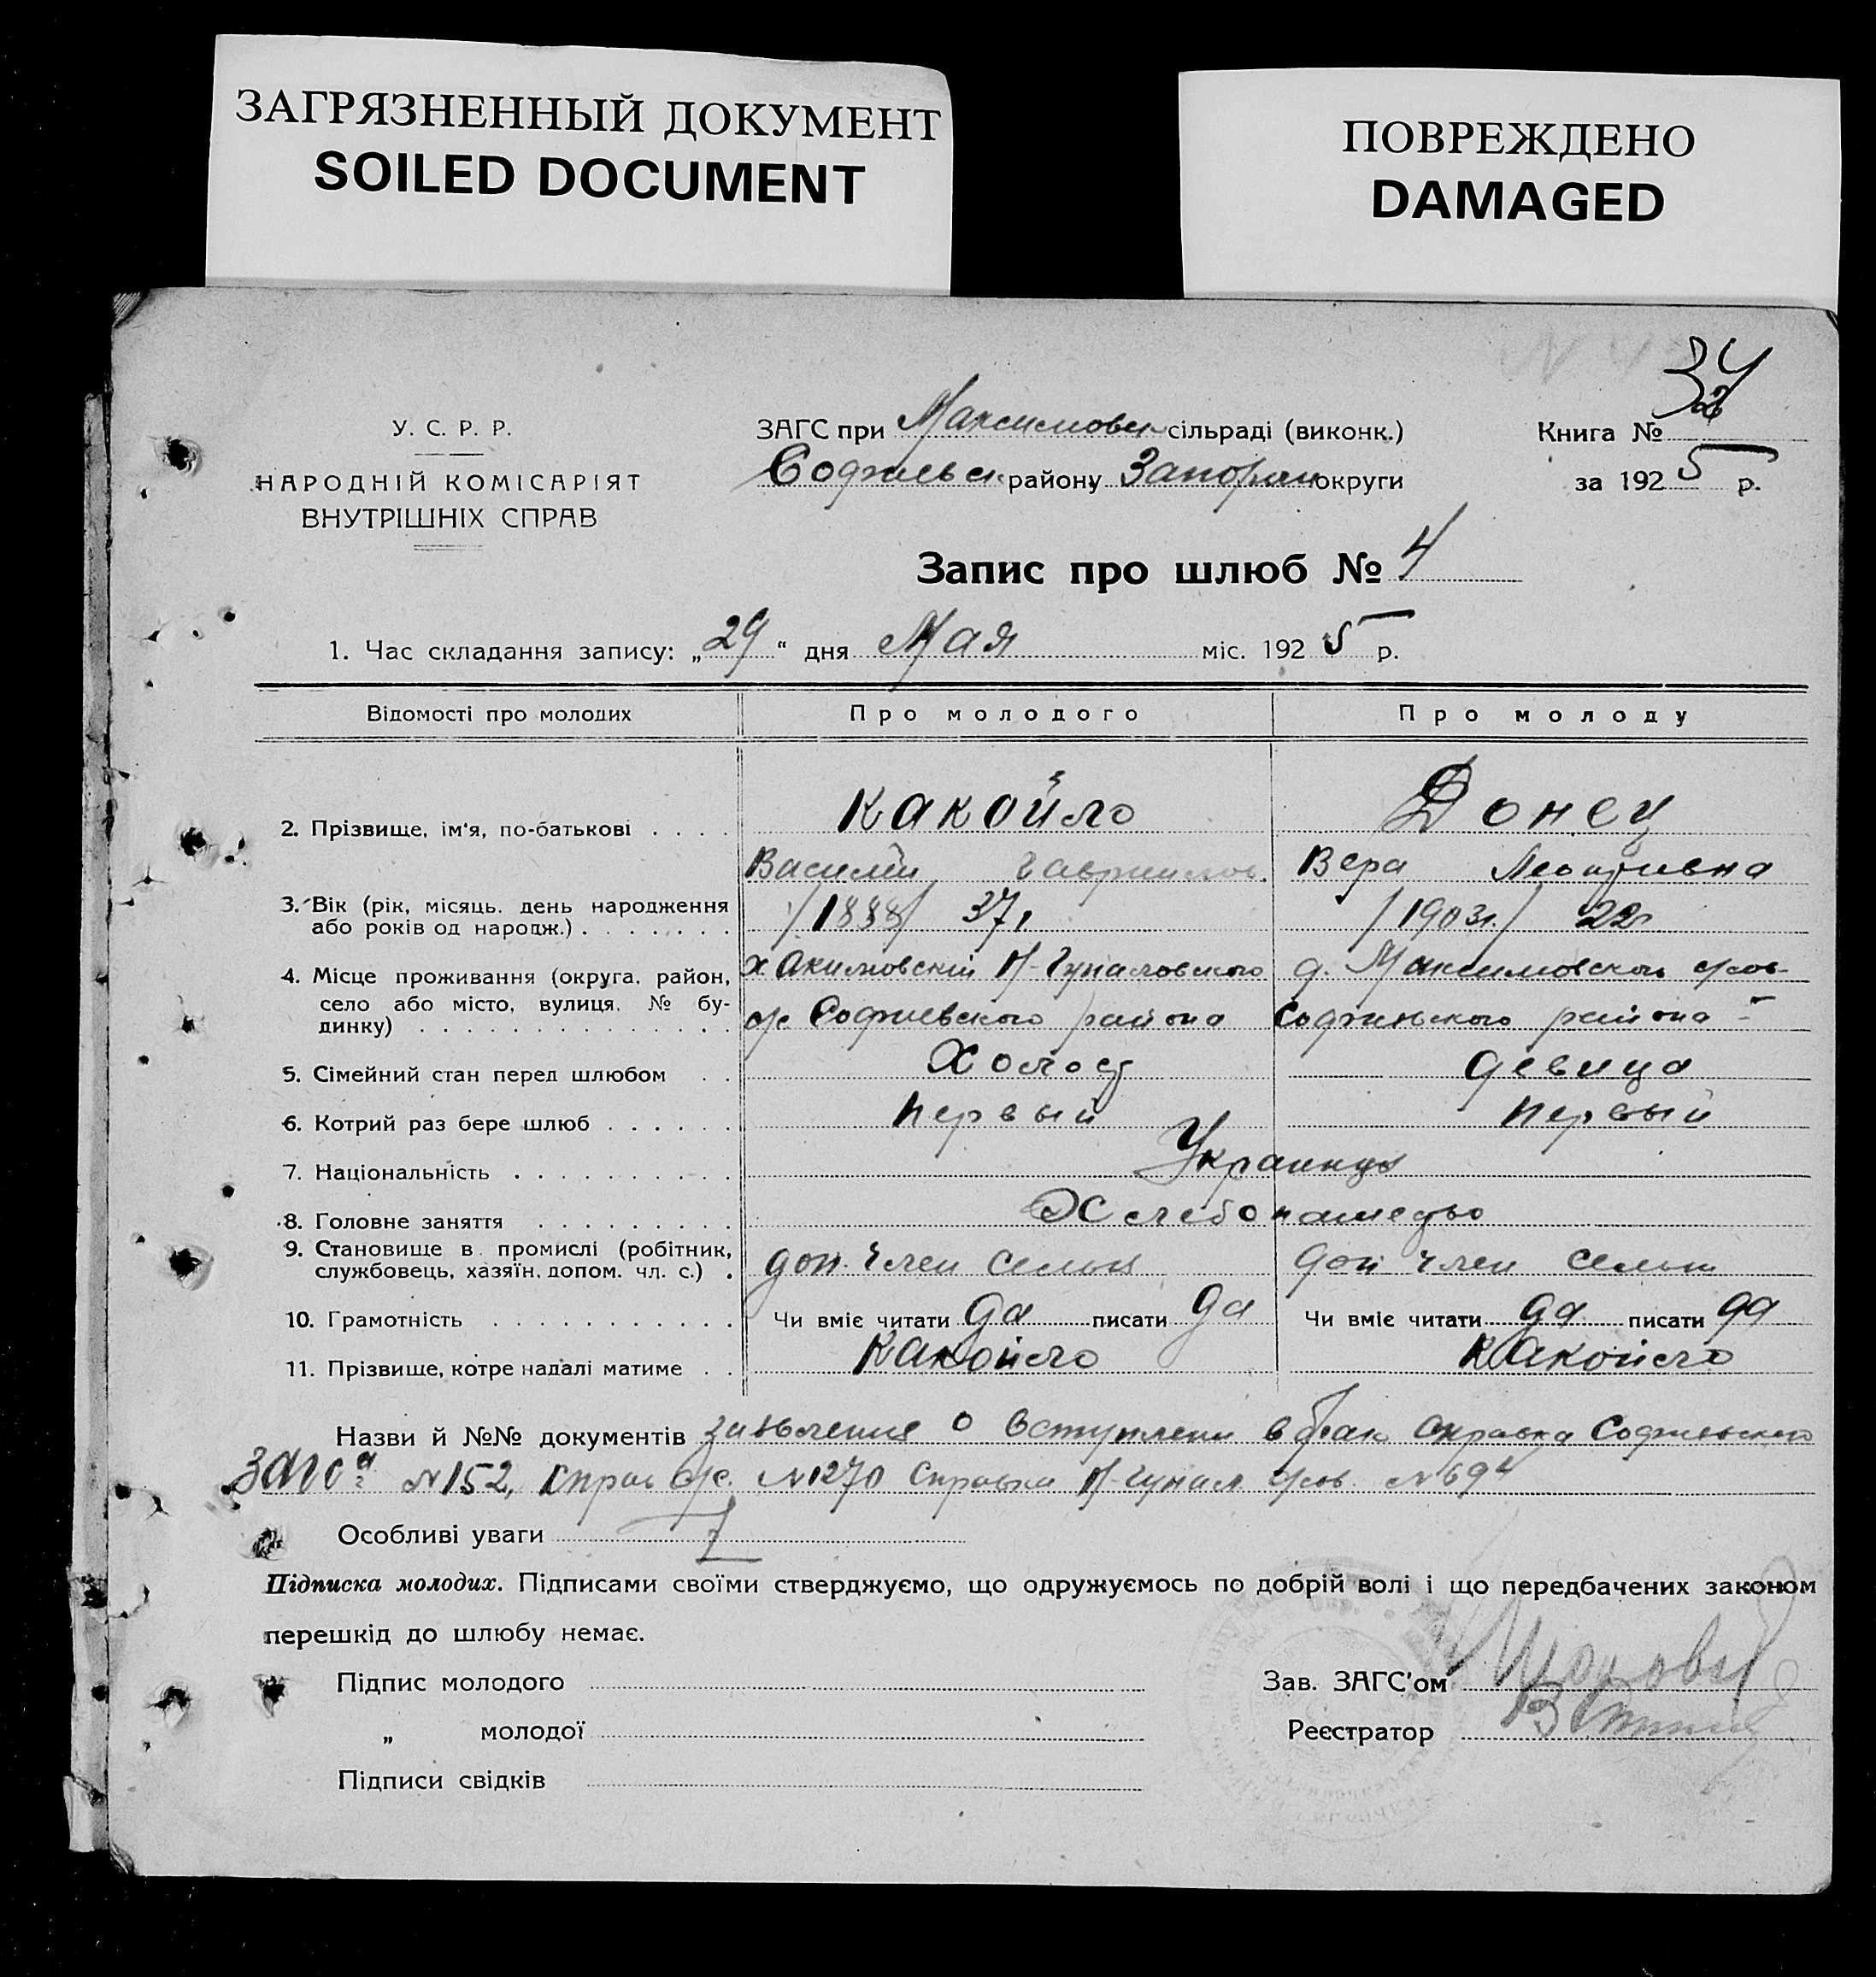 ЗАГРЯЗНЕННЫЙ ДОКУМЕНТ
SOILED DOCUMENT
ПОВРЕЖДЕНО
DAMAGED
У. С. Р. Р.
НАРОДНІЙ КОМІСАРІЯТ
ВНУТРІШНІХ СПРАВ
ЗАГС при Максимовск сільраді (виконк.)
Софиевск району Запорож округи
Книга №
за 1925 р.
Запис про шлюб № 4
1. Час складання запису: „29“ дня Мая міс. 1925 р.
Відомості про молодих Про молодого Про молоду
2. Прізвище, ім'я, по-батькові . . . . Какойло Донец
Василий Гаврилов. Вера Леонтиевна
3. Вік (рік, місяць, день народження /1888/ 37г. /1903г./ 22г
або років од народж.) . . . . . . .
4. Місце проживання (округа, район, х. Акимовский Н-Гупаловского д. Максимовской с/сов-
село або місто, вулиця, № бу- с/с. Софиевского района Софиевского района
динку) . . . . . . . . . . . . . .
5. Сімейний стан перед шлюбом . . Холост девица
6. Котрий раз бере шлюб . . . . . . первый первый
7. Національність . . . . . . . . . . Украинцы
8. Головне заняття . . . . . . . . . Хлебопашество
9. Становище в промислі (робітник, доп. член семьи доп член семьи
службовець, хазяїн, допом. чл. с.) .
10. Грамотність . . . . . . . . . . . Чи вміє читати да писати да Чи вміє читати да писати да
11. Прізвище, котре надалі матиме . . Какойло Какойло
Назви й №№ документів заявление о вступлени в брак справка Софиевского
Загса №152, справ с/с. №1270 Справка Н-Гупал с/сов. №694
Особливі уваги
Підписка молодих. Підписами своїми стверджуємо, що одружуємось по добрій волі і що передбачених законом
перешкід до шлюбу немає.
Підпис молодого
Зав. ЗАГС'ом
„ молодої
Реєстратор
Підписи свідків